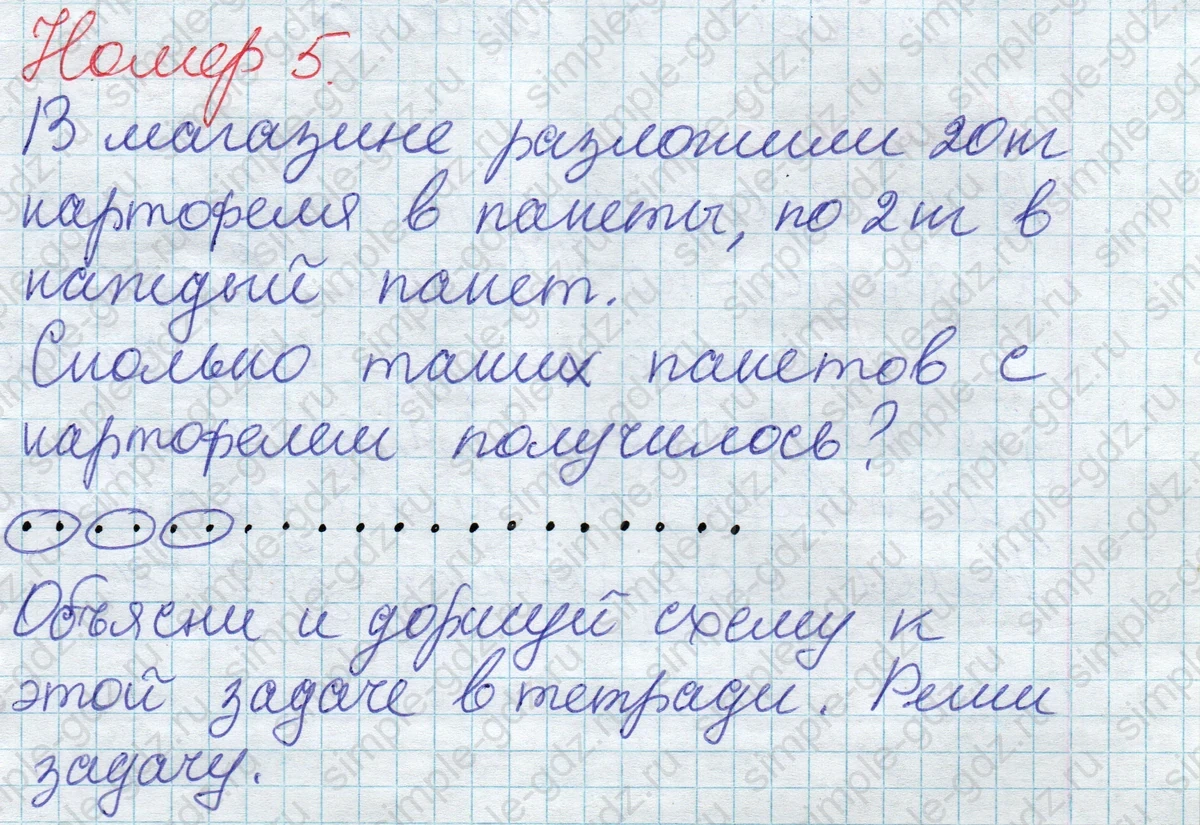 Номер 5.
В магазине разложили 20 кг
картофеля в пакеты, по 2 кг в
каждый пакет.
Сколько таких пакетов с
картофелем получилось?
Объясни и дорисуй схему к
этой задаче в тетради. Реши
задачу.
simple-gdz.ru